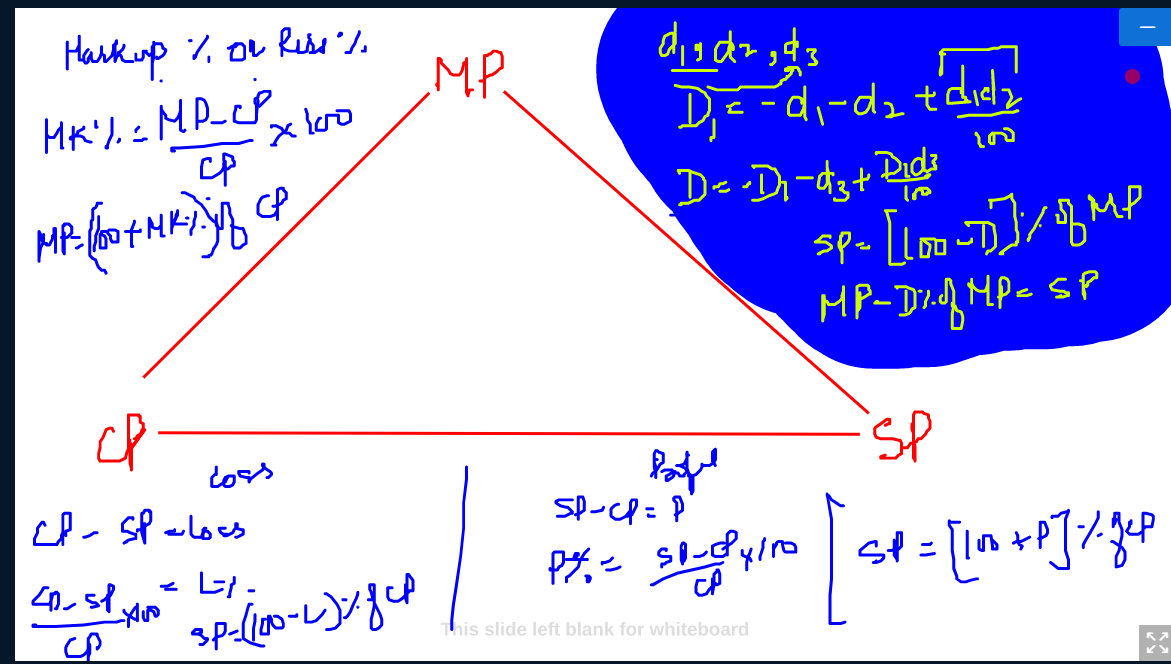 Markup % or Rise %
MP
MK% = MP - CP / CP × 100
MP = (100 + MK%) of CP
d1, d2, d3
D1 = - d1 - d2 + d1d2 / 100
D = - D1 - d3 + D1d3 / 100
SP = [100 - D] % of MP
MP - D% of MP = SP
CP
SP
Loss
CP - SP = Loss
CP - SP / CP × 100 = L%
SP = (100 - L) % of CP
Profit
SP - CP = P
P% = SP - CP / CP × 100
SP = [100 + P] % of CP
This slide left blank for whiteboard